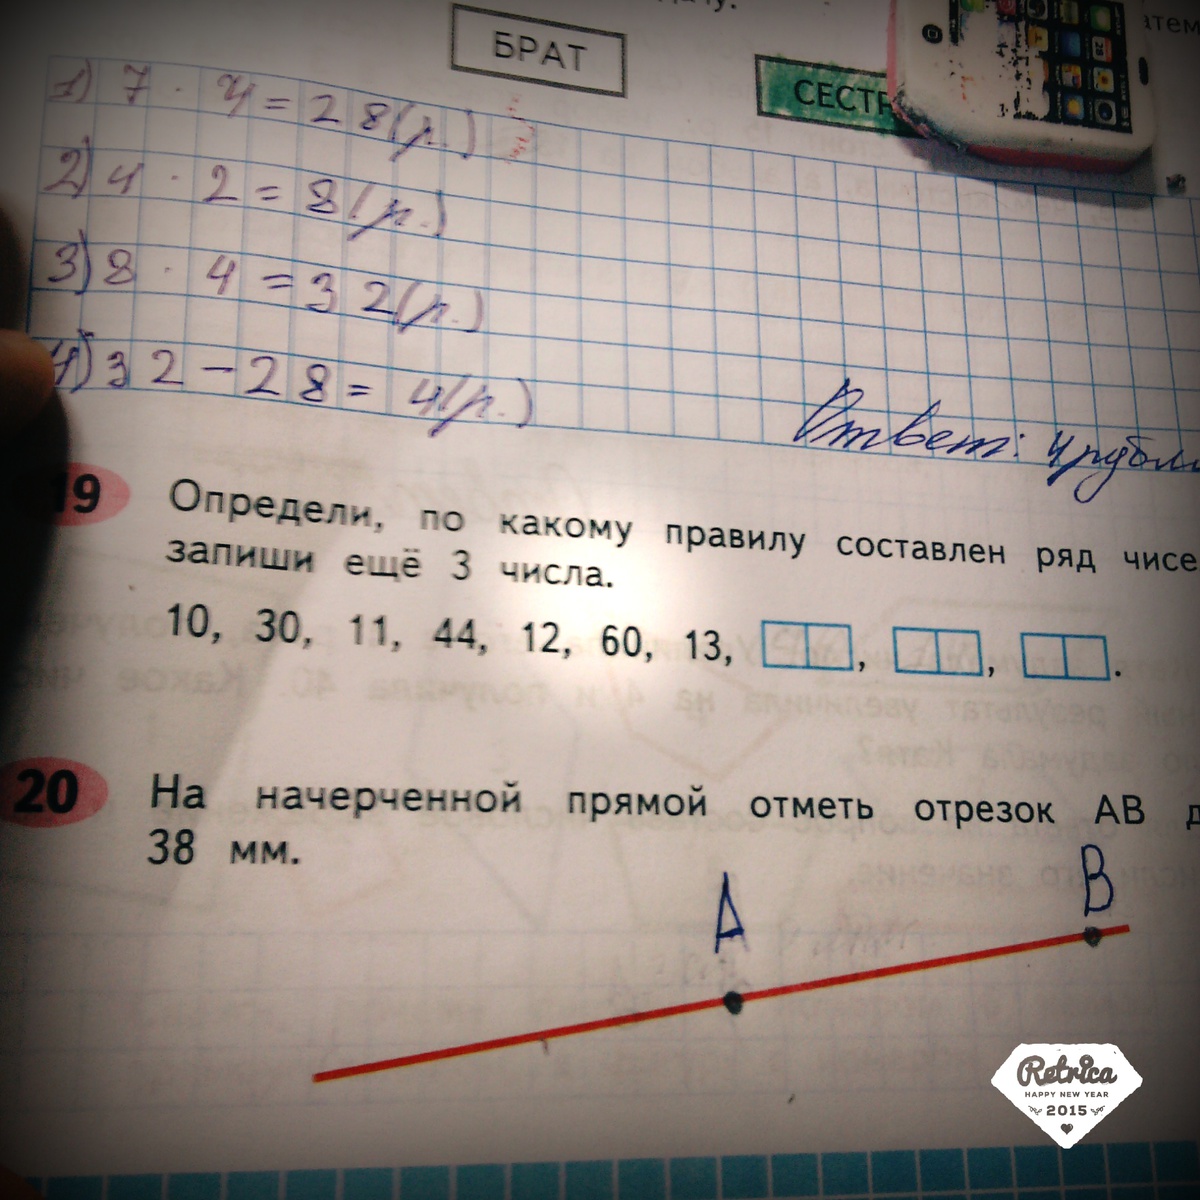 БРАТ
СЕСТР
1) 7 · 4 = 28 (р.)
2) 4 · 2 = 8 (р.)
3) 8 · 4 = 32 (р.)
4) 32 - 28 = 4 (р.)
Ответ: 4 рубл
19 Определи, по какому правилу составлен ряд чисе
запиши ещё 3 числа.
10, 30, 11, 44, 12, 60, 13, , , .
20 На начерченной прямой отметь отрезок АВ д
38 мм.
А В
Retrica
HAPPY NEW YEAR
2015